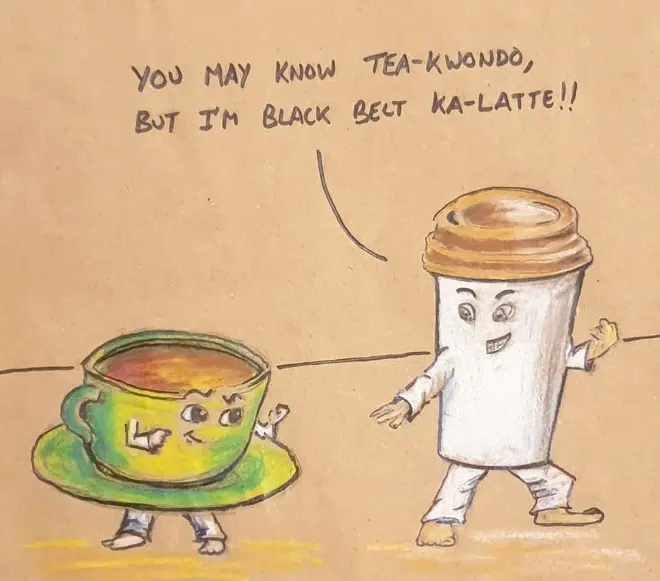 YOU MAY KNOW TEA-KWONDO,
BUT I'M BLACK BELT KA-LATTE!!